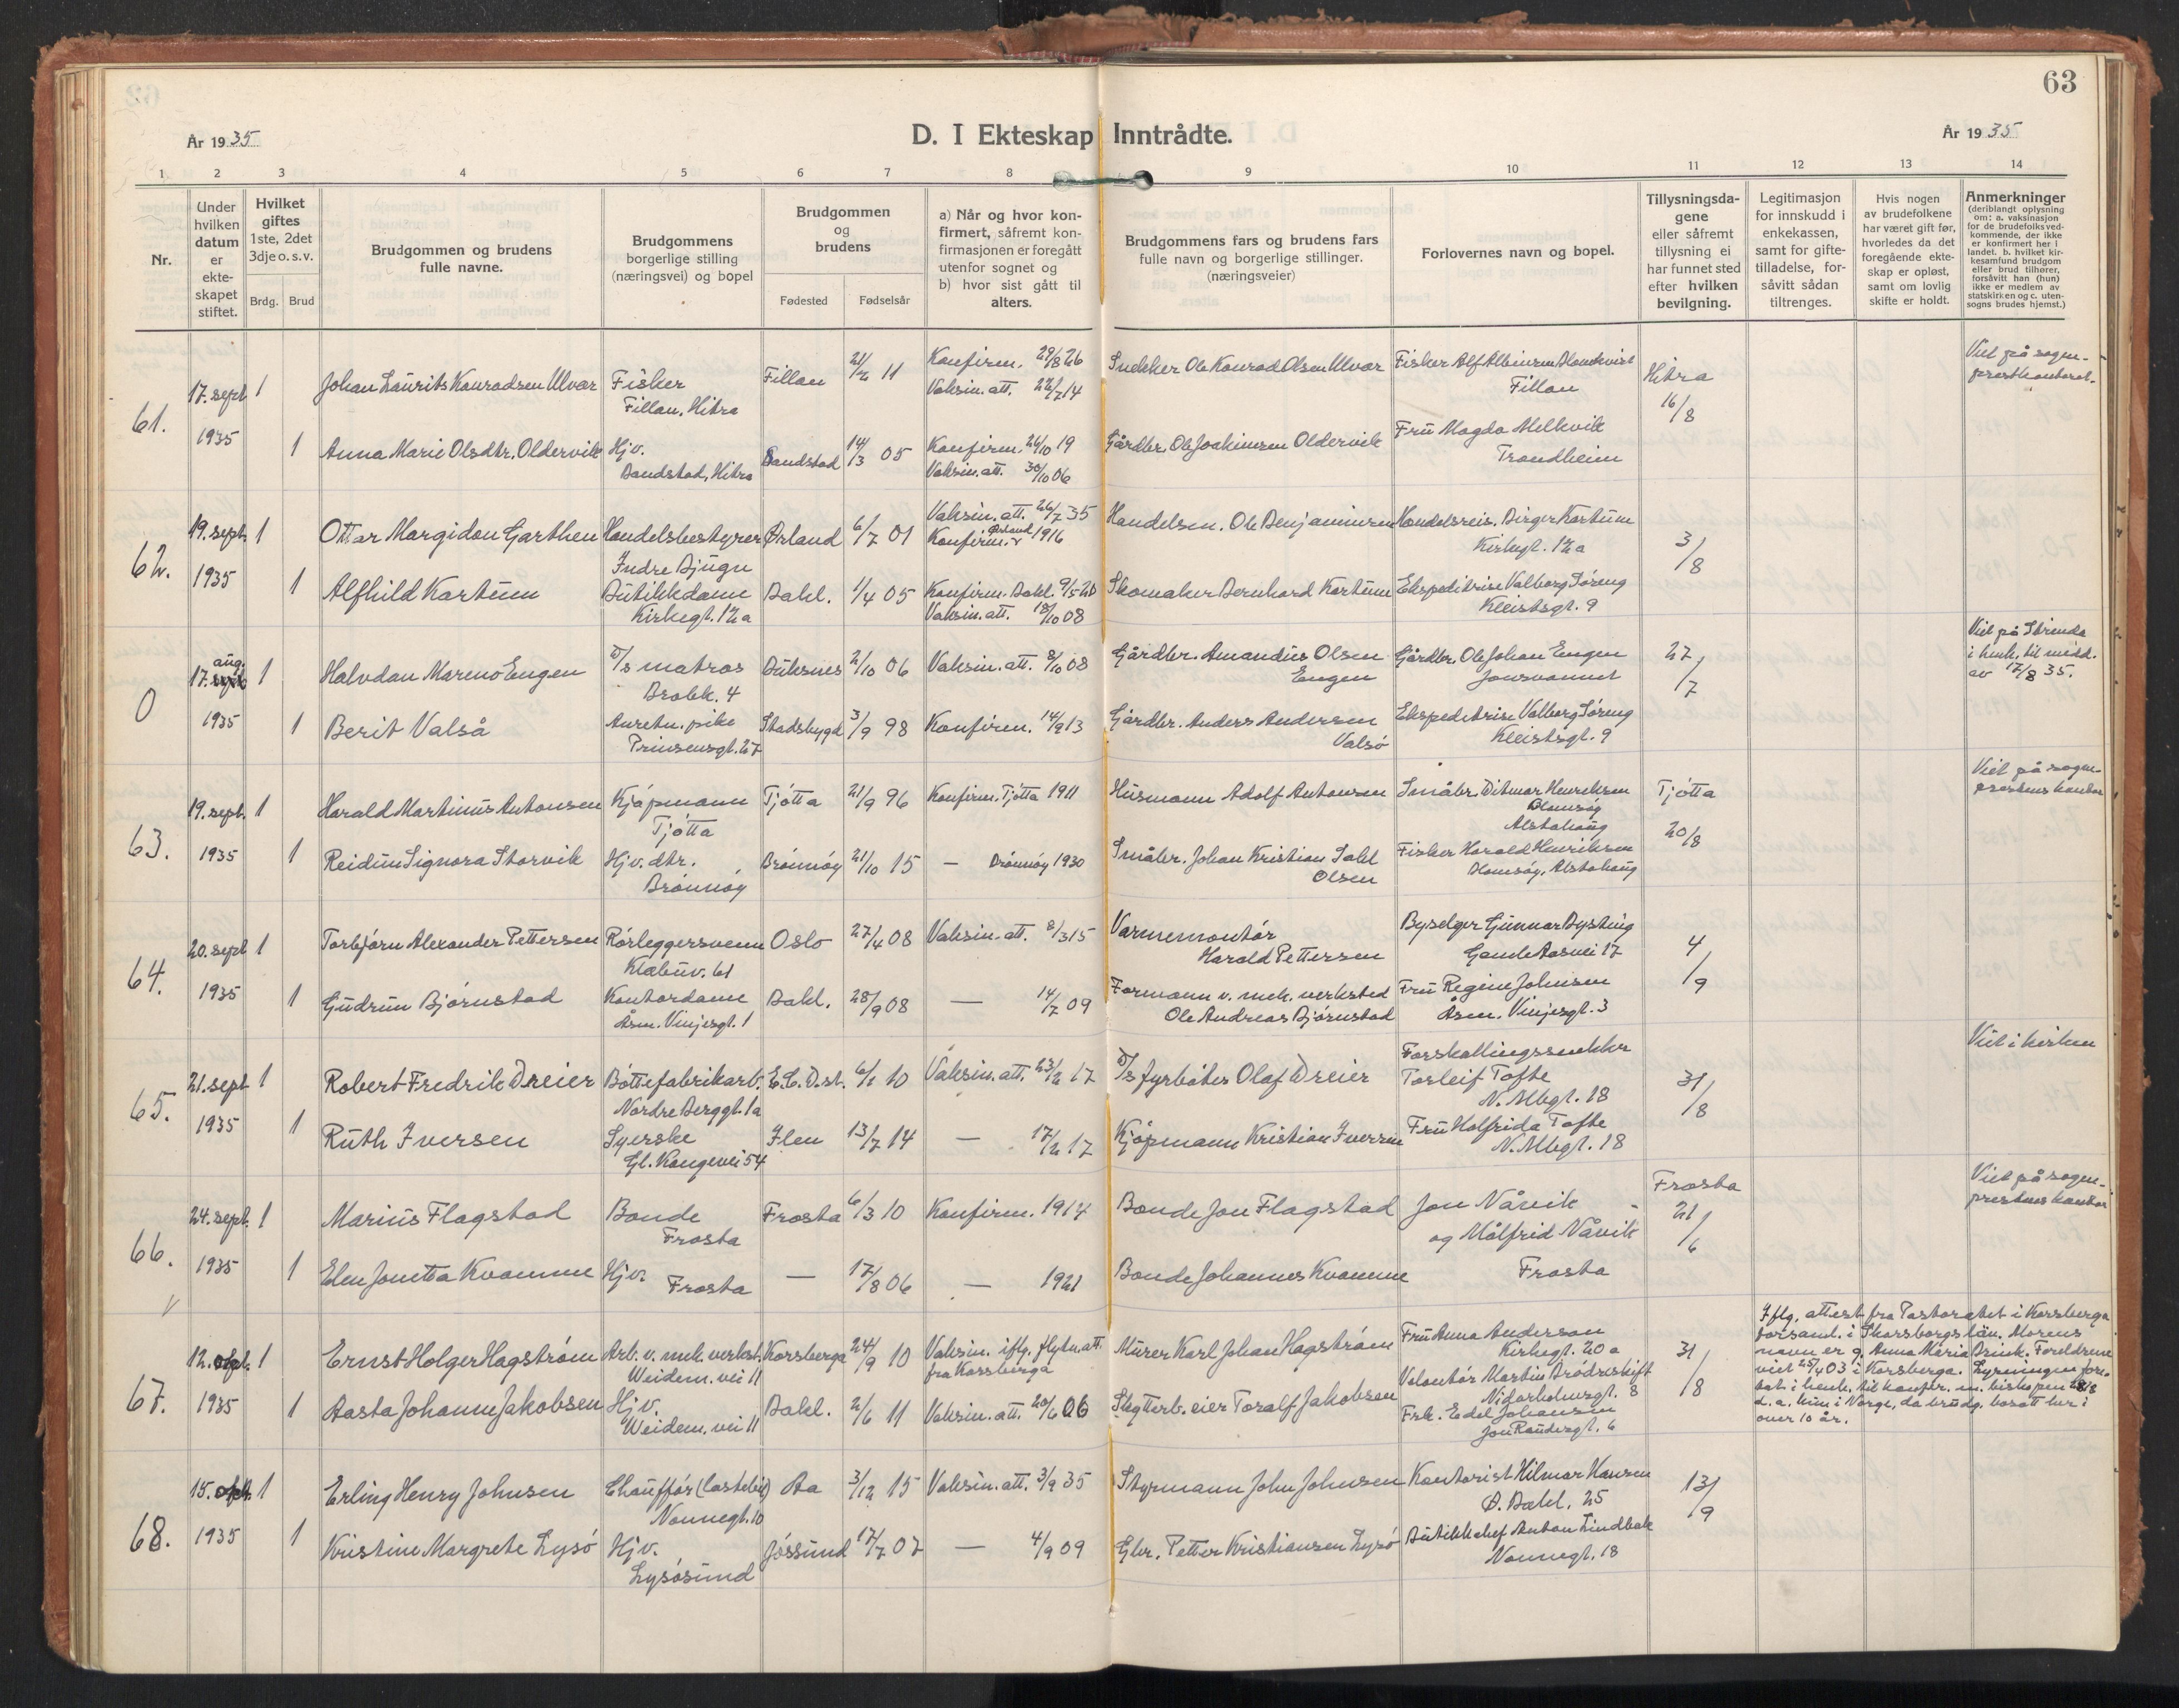 63
År 1935
D. I Ekteskap Inntrådte.
År 1935
1 2 3 4 5 6 7 8 9 10 11 12 13 14
Nr.
Under hvilken datum er ekte-skapet stiftet.
Hvilket giftes 1ste, 2det 3dje o. s. v.
Brdg. Brud
Brudgommen og brudens fulle navne.
Brudgommens borgerlige stilling (næringsvei) og bopel
Brudgommen og brudens
Fødested Fødselsår
a) Når og hvor kon-firmert, såfremt kon-firmasjonen er foregått utenfor sognet og
b) hvor sist gått til alters.
Brudgommens fars og brudens fars fulle navn og borgerlige stillinger. (næringsveier)
Forlovernes navn og bopel.
Tillysningsda-gene eller såfremt tillysning ei har funnet sted efter hvilken bevilgning.
Legitimasjon for innskudd i enkekassen, samt for gifte-tilladelse, for-såvitt sådan tiltrenges.
Hvis nogen av brudefolkene har været gift før, hvorledes da det foregående ekte-skap er opløst, samt om lovlig skifte er holdt.
Anmerkninger (deriblandt oplysning om: a. vaksinasjon for de brudefolksved-kommende, der ikke er konfirmert her i landet. b. hvilket kir-kesamfund brudgom eller brud tilhører, forsåvitt han (hun) ikke er medlem av statskirken og c. uten-sogns brudes hjemst.)
61. 17. sept 1935 1 Johan Laurits Konradsen Ulvær Fisker Fillan, Hitra Fillan 21/2 11 Konfirm. 29/8 26 Vaksin. att. 22/7 14 Snekker Ole Konrad Olsen Ulvær Fisker Alf Albinsen Blomkvist Fillan Hitra 16/8 Viet på sogne-prestkontoret.
1 Anna Marie Olsdtr. Oldervik Hjv. Sandstad, Hitra Sandstad 14/3 05 Konfirm. 26/10 19 Vaksin. att. 30/10 06 Gårdbr. Ole Joakimsen Oldervik Fru Magda Melkvik Trondheim
62. 19. sept. 1935 1 Ottar Margidon Garthen Handelsbestyrer Indre Bjugn Ørland 6/7 01 Vaksin. att. 26/7 35 Konfirm. Ørland 1916 Handelsm. Ole Benjaminsen Handelsreis. Birger Kartum Kirkegt. 12a 3/8
1 Alfhild Kartum Butikkdame Kirkegt. 12a Bakl. 1/4 05 Konfirm. Bakl. 9/5 20 Vaksin. att. 18/10 08 Skomaker Bernhard Kartum Ekspeditrise Valborg Søreng Kleistsgt. 9
0 17. aug. 1935 1 Halvdan Mareno Engen D/s matros Brobk. 4 Buksnes 2/10 06 Vaksin. att. 8/10 08 Gårdbr. Amandus Olsen Engen Gårdbr. Ole Johan Engen Jonsvannet 27/7 Viet på Strinda i henh. til medd. av 17/8 35.
1 Berit Valså Anretn. pike Prinsensgt. 27 Stadsbygd 3/9 98 Konfirm. 14/9 13 Gårdbr. Anders Andersen Valsø Ekspeditrise Valborg Søreng Kleistsgt. 9
63. 19. sept. 1935 1 Harald Martinus Antonsen Kjøpmann Tjøtta Tjøtta 21/9 96 Konfirm. Tjøtta 1911 Husmann Adolf Antonsen Småbr. Ditmar Henriksen Blomsøy Alstahaug Tjøtta 20/8 Viet på sogne-prestens kontor
1 Reidun Signora Storvik Hjv. dtr. Brønnøy Brønnøy 21/10 15 — Brønnøy 1930 Småbr. Johan Kristian Dahl Olsen Fisker Harald Henriksen Blomsøy, Alstahaug
64. 20. sept 1935 1 Torbjørn Alexander Pettersen Rørleggersvenn Klæbuv. 61 Oslo 27/4 08 Vaksin. att. 8/3 15 Varmemontør Harald Pettersen Byselger Gunnar Dysting Gamle Aasvei 17 4/9
1 Gudrun Bjørnstad Kontordame Åsm. Vinjesgt. 1 Bakl. 28/9 08 — 14/7 09 Formann v. mek. verksted Ole Andreas Bjørnstad Fru Regine Johnsen Åsm. Vinjesgt. 3
65. 21. sept 1935 1 Robert Fredrik Dreier Bøttefabrikarb. Nordre Berggt. 1a E.C.D.st. 6/1 10 Vaksin. att. 23/2 17 D/s fyrbøter Olaf Dreier Forskallingssnekker Torleif Tofte N. Mbgt. 18 31/8 Viet i kirken
1 Ruth Iversen Syerske Gl. Kongevei 54 Ilen 13/7 14 — 17/2 17 Kjøpmann Kristian Iversen Fru Halfrida Tofte N. Mbgt. 18
66. 24. sept. 1935 1 Marius Flagstad Bonde Frosta Frosta 6/3 10 Konfirm. 1914 Bonde Jon Flagstad Jon Nåvik og Målfrid Nåvik Frosta Frosta 21/6 Viet på sogne-prestens kontor
1 Elen Jonetta Kvamme Hjv. Frosta — 17/8 06 — 1921 Bonde Johannes Kvamme
67. 12. 1935 1 Ernst Holger Hagstrøm Arb. v. mek. verkst. Weidem. vei 11 Korsberga 24/9 10 Vaksin. iflg. flytn. att. fra Korsberga Murer Karl Johan Hagstrøm Fru Anna Anderson Kirkegt. 20a 31/8 Iflg. attest fra Pastoratet i Korsberga forsaml. i Skarsborgs län. Morens navn er g. Anna Maria Brink. Foreldrene viet 25/4 03 i Korsberga. Lysningen foretat i henh. til konfer. m. biskopen 28/8 d.a. kun i Norge, da brudg. bosatt her i over 10 år.
1 Aasta Johanne Jakobsen Hjv. Weidem. vei 11 Bakl. 2/6 11 Vaksin. att. 20/6 06 Slegterb. eier Toralf Jakobsen Volontør Martin Brødreskift Nidarholmsgt. 8 Frk. Edel Johansen Jon Raudesgt. 6
68. 15. 1935 1 Erling Henry Johnsen Chauffør (lastebil) Nonnegt. 10 Aa 3/12 15 Vaksin. att. 3/9 35 Styrmann John Johnsen Kontorist Hilmar Hansen Ø. Bakl. 25 13/9
1 Kristine Margrete Lysø Hjv. Lysøsund Jøssund 17/7 07 — 4/9 09 Gbr. Petter Kristiansen Lysø Butikkchef Anton Lindbak Nonnegt. 18